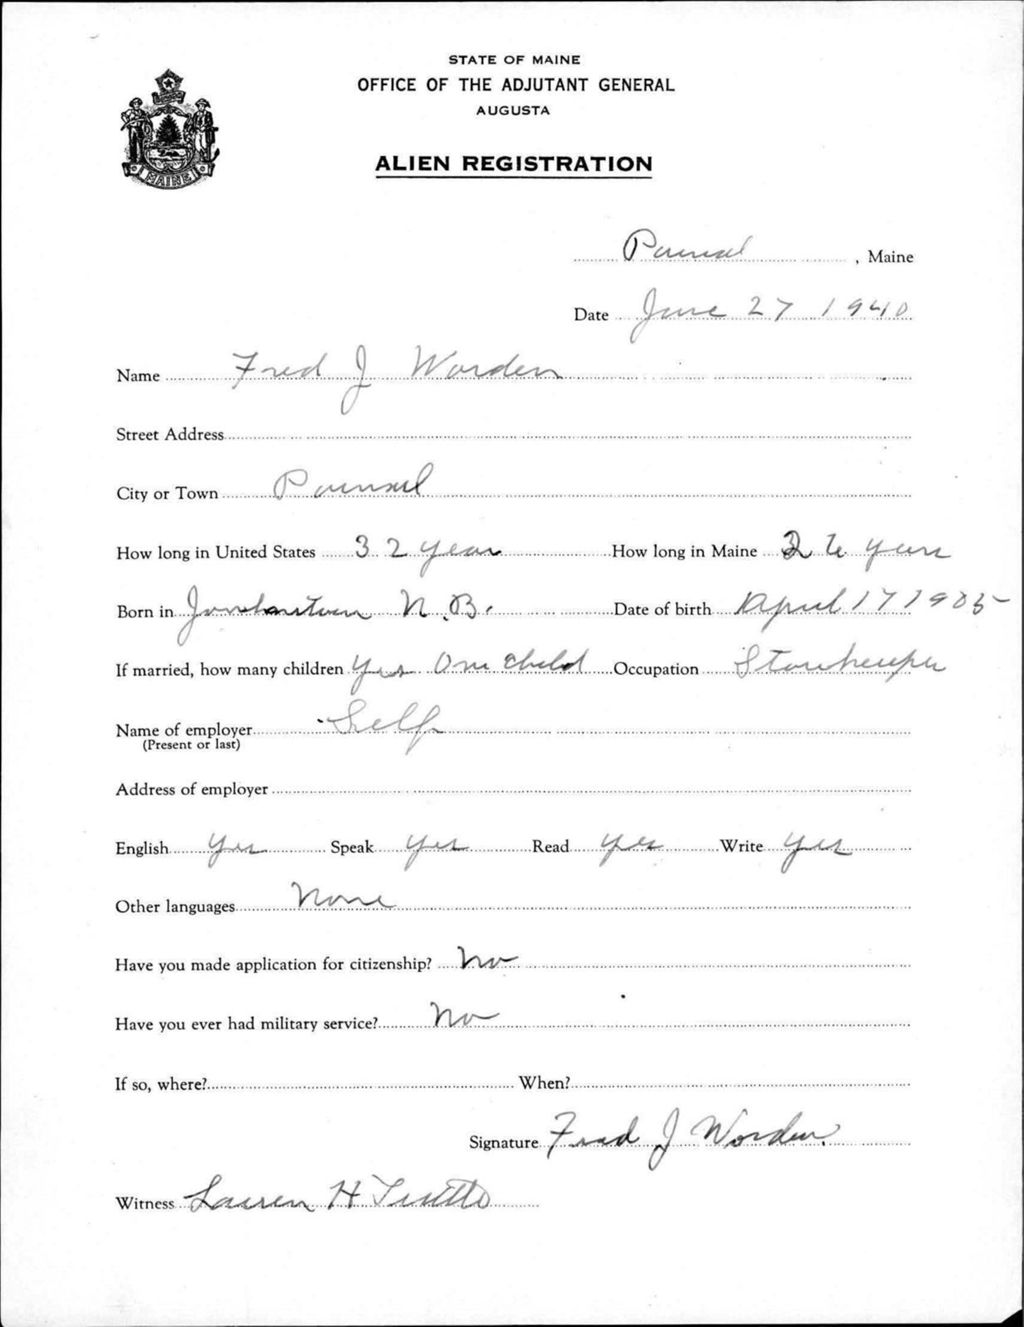 STATE OF MAINE
OFFICE OF THE ADJUTANT GENERAL
AUGUSTA
ALIEN REGISTRATION
MAINE
Pownal, Maine
Date June 27 1940
Name Fred J Worden
Street Address
City or Town Pownal
How long in United States 32 years How long in Maine 26 years
Born in N.B. Date of birth April 17 1905
If married, how many children Yes One child Occupation Storekeeper
Name of employer Self
(Present or last)
Address of employer
English Yes Speak Yes Read Yes Write Yes
Other languages None
Have you made application for citizenship? No
Have you ever had military service? No
If so, where? When?
Signature Fred J Worden
Witness Lauren H Tuttle